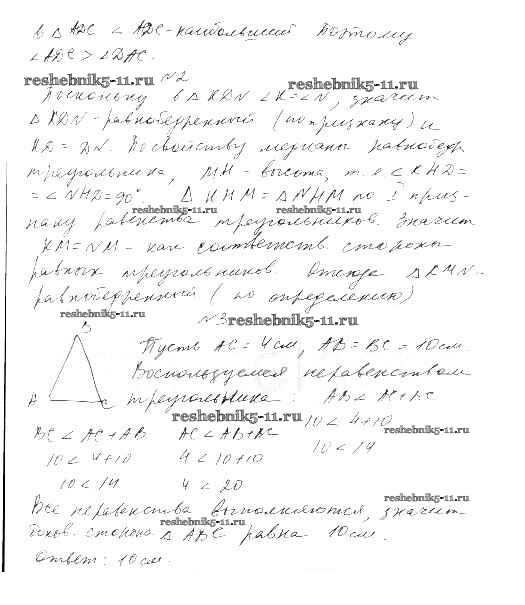 в △ ADC ∠ ADC - наибольший Поэтому
∠ADC > ∠DAC.
reshebnik5-11.ru №2 reshebnik5-11.ru
Поскольку в △ KDN ∠K = ∠N, значит
△ KDN - равнобедренный (по признаку) и
KD = DN. По свойству медианы равнобедр
треугольника, MH - высота, т. е ∠ KHD =
= ∠ NHD = 90° △ KHM = △ NHM по I приз-
reshebnik5-11.ru reshebnik5-11.ru
наку равенства треугольников. Значит
KM = NM - как соответств. стороны
равных треугольников. Отсюда △ KMN -
равнобедренный (по определению)
reshebnik5-11.ru №3 reshebnik5-11.ru
B
Пусть AC = 4 см, AB = BC = 10 см.
Воспользуемся неравенством
A C треугольника: AB < AC + BC
reshebnik5-11.ru 10 < 4 + 10
BC < AC + AB AC < AB + BC reshebnik5-11.ru
10 < 14
10 < 4 + 10 4 < 10 + 10
10 < 14 4 < 20
reshebnik5-11.ru
Все неравенства выполняются, значит
reshebnik5-11.ru
боков. сторона △ ABC равна 10 см.
Ответ: 10 см.